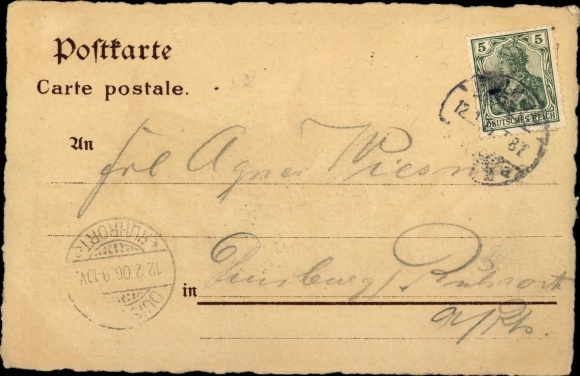 Postkarte
Carte postale.
5 5
DEUTSCHES REICH
12.
An
Frl. Agnes
RUHRORT
12.2.06.9-10V.
DUIS
in Duisburg/Ruhrort
a/Rh.